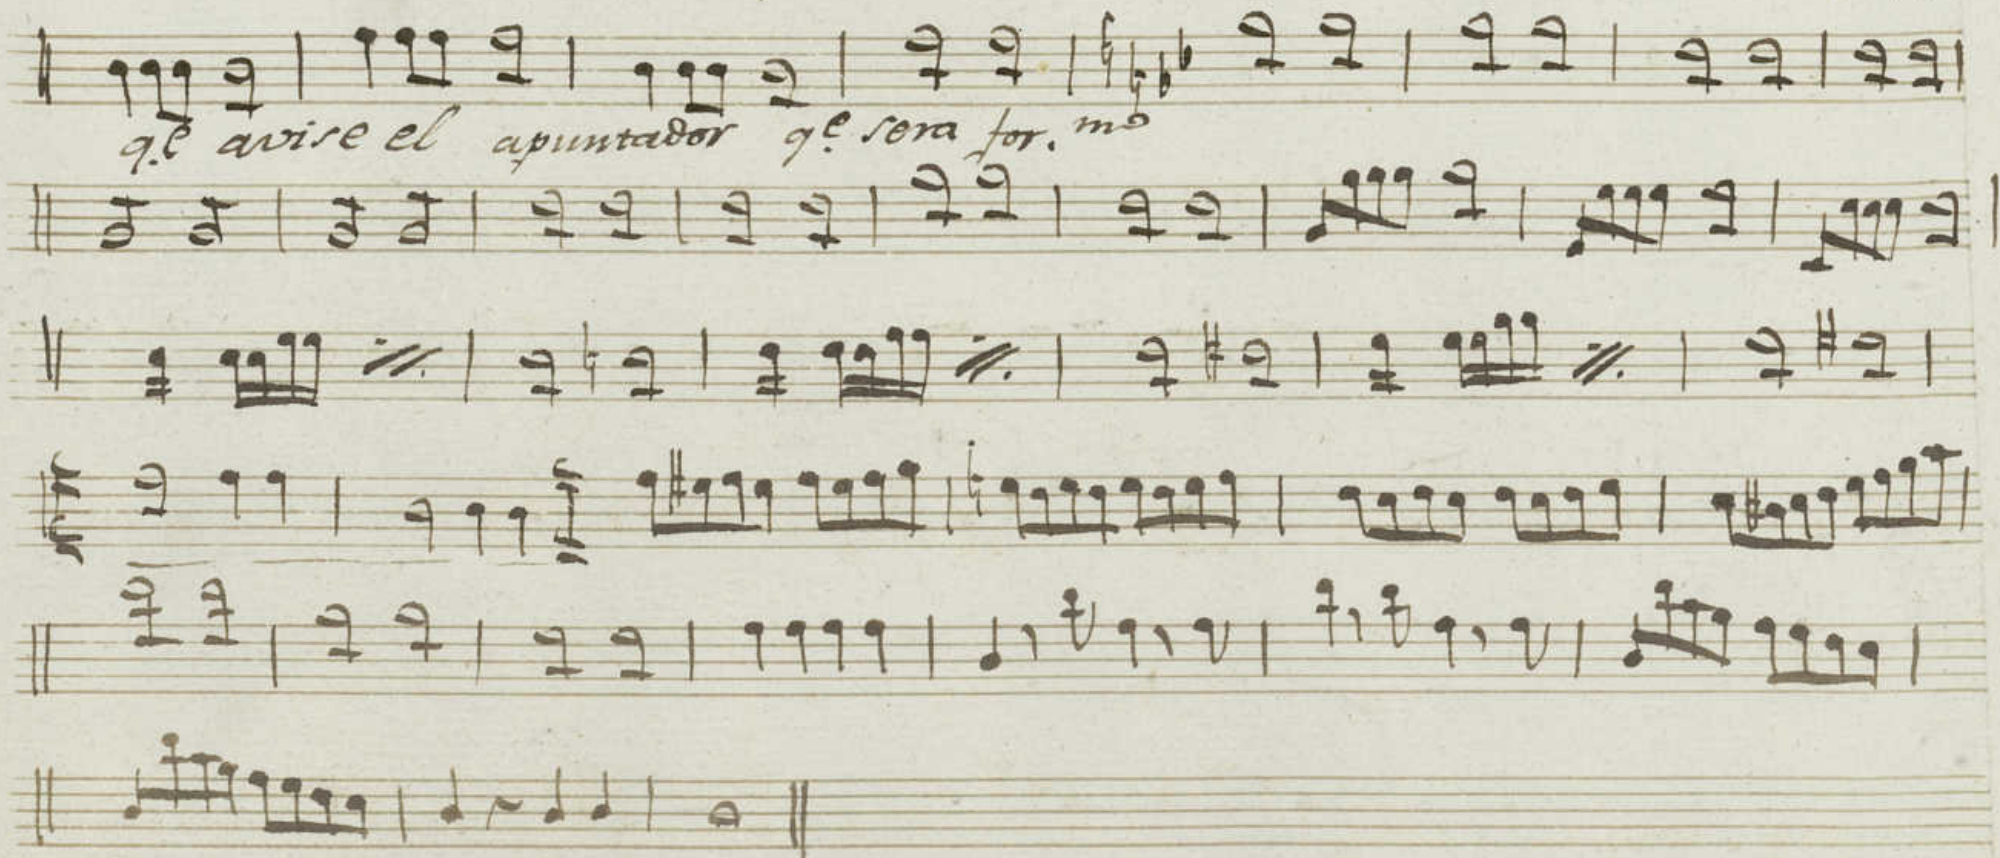 q.e avise el apuntador q.e sera for.mo